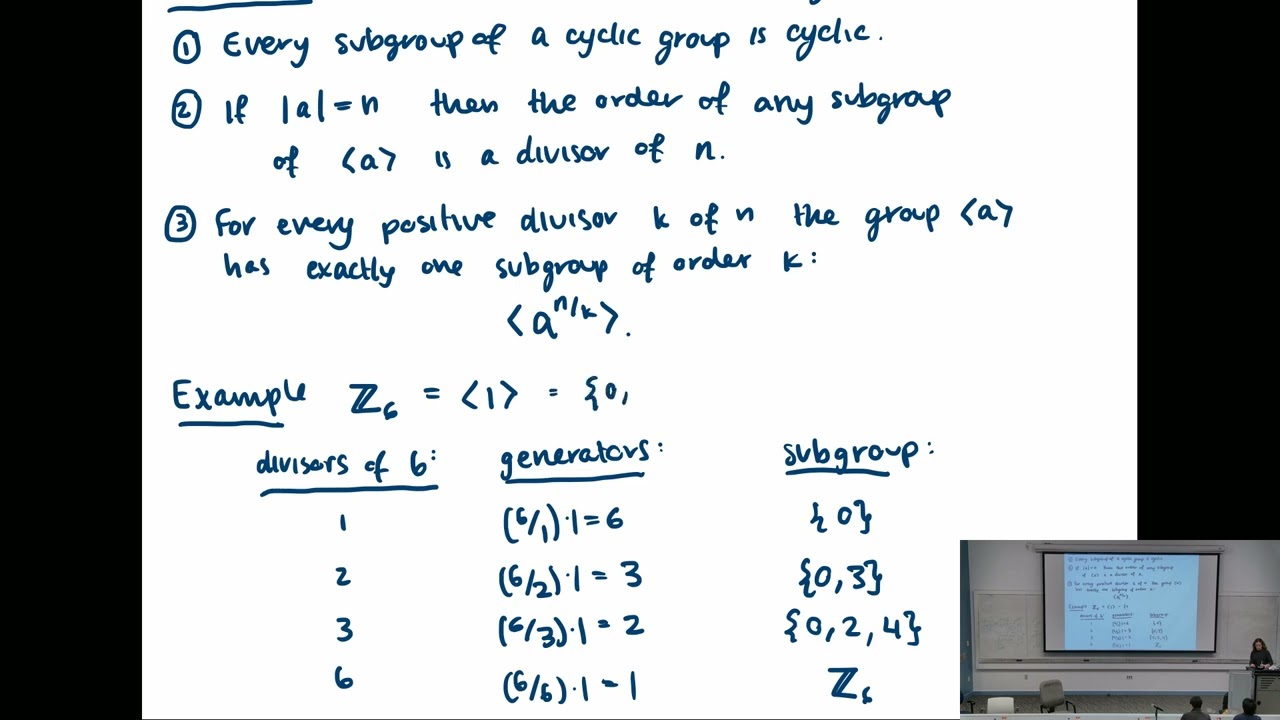 ① Every subgroup of a cyclic group is cyclic.
② If |a|=n then the order of any subgroup
of <a> is a divisor of n.
③ For every positive divisor k of n the group <a>
has exactly one subgroup of order k:
<a^{n/k}>.
Example ℤ₆ = <1> = {0,
divisors of 6: generators: subgroup:
1 (6/1)·1=6 {0}
2 (6/2)·1=3 {0,3}
3 (6/3)·1=2 {0,2,4}
6 (6/6)·1=1 ℤ₆